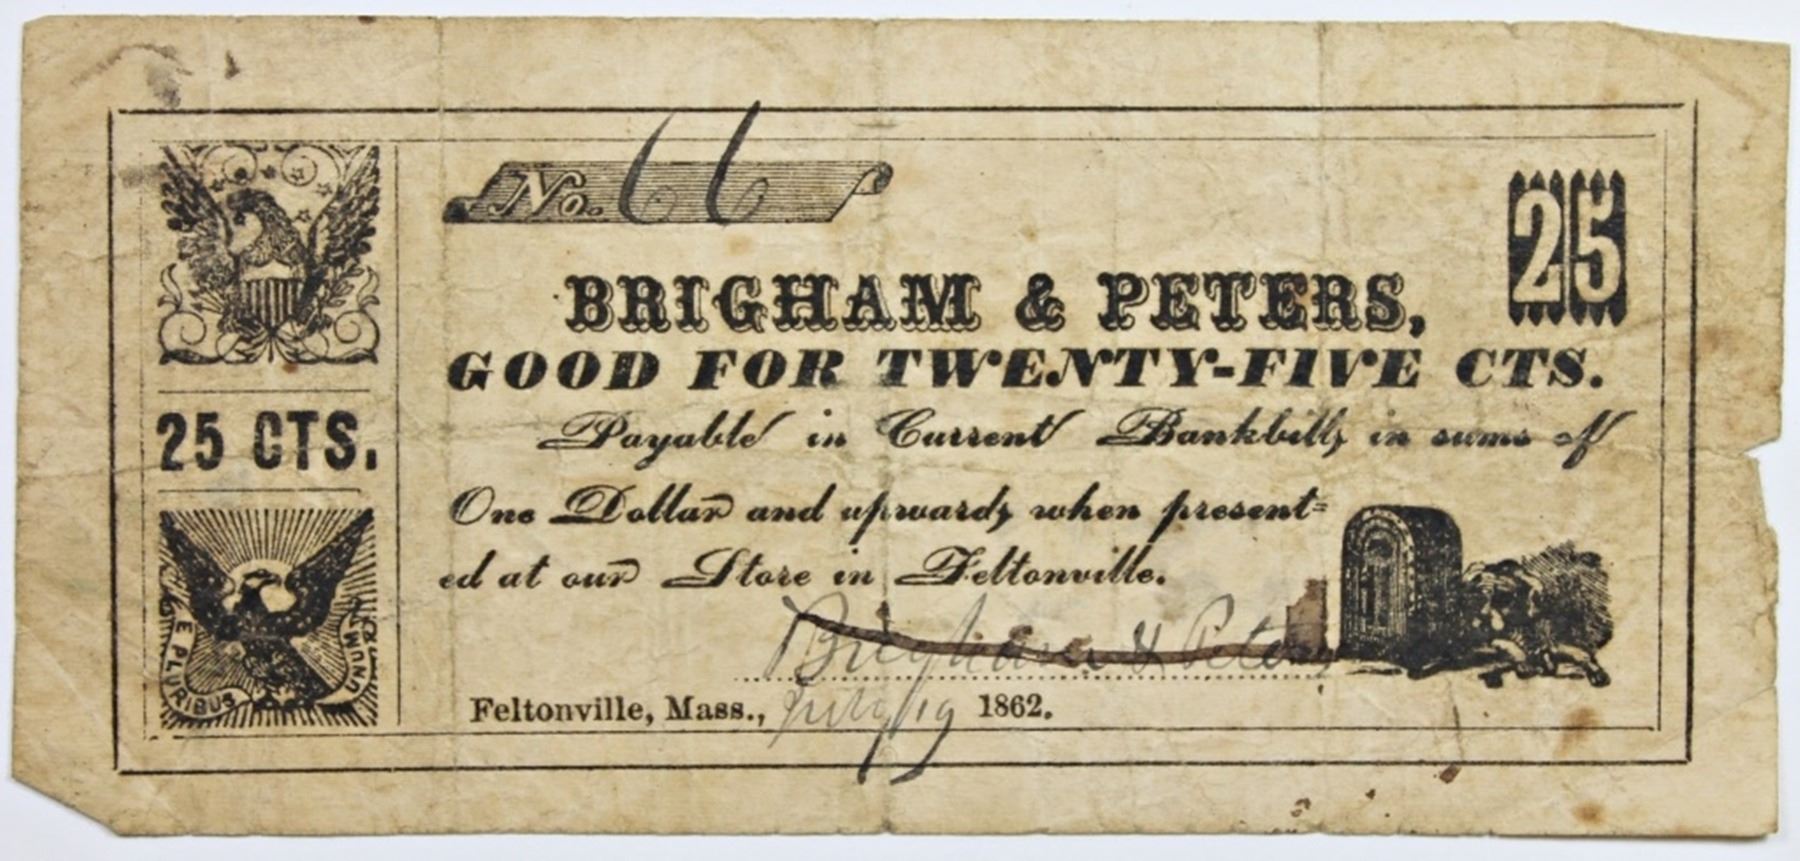 No. 66
25
BRIGHAM & PETERS,
GOOD FOR TWENTY-FIVE CTS.
25 CTS.
Payable in Current Bankbills in sums of
One Dollar and upwards when present=
ed at our Store in Feltonville.
E PLURIBUS UNUM
Brigham & Peters
Feltonville, Mass., July 19 1862.